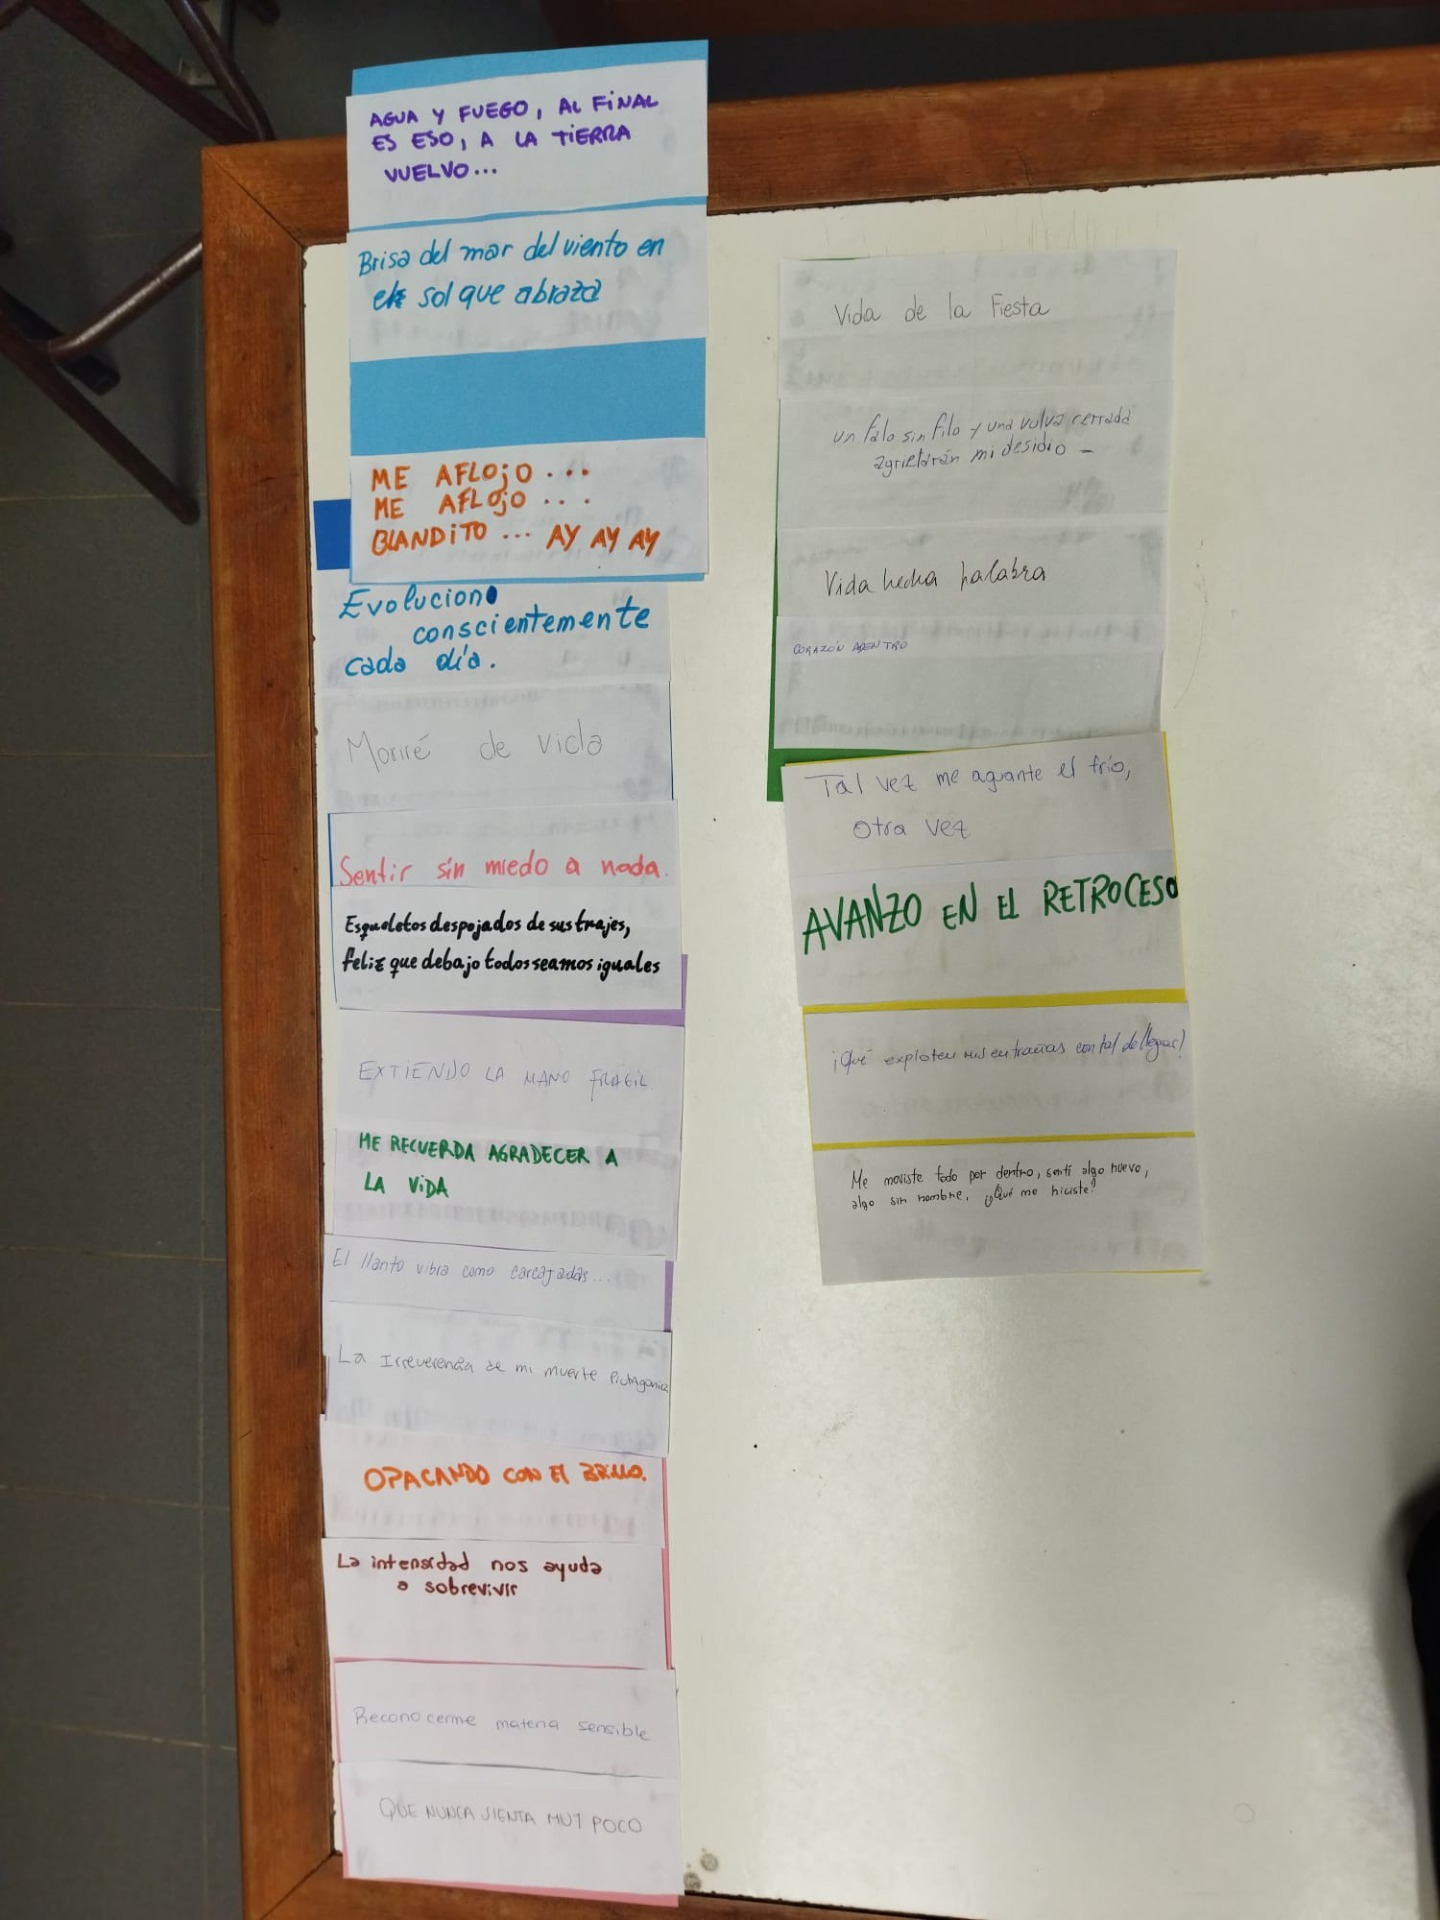 AGUA Y FUEGO, AL FINAL
ES ESO, A LA TIERRA
VUELVO...
Brisa del mar del viento en
el sol que abraza
ME AFLOJO ...
ME AFLOJO ...
BLANDITO ... AY AY AY
Evoluciono
conscientemente
cada día.
Moriré de vida
Sentir sin miedo a nada.
Esqueletos despojados de sus trajes,
feliz que debajo todos seamos iguales
EXTIENDO LA MANO FRÁGIL
ME RECUERDA AGRADECER A
LA VIDA
El llanto vibra como carcajadas...
La Irreverencia de mi muerte
OPACANDO CON El BRILLO.
La intensidad nos ayuda
a sobrevivir
Reconocerme materia sensible
QUE NUNCA SIENTA MUY POCO
Vida de la Fiesta
un falo sin filo y una vulva cerrada
agrietarán mi desidio -
Vida hecha palabra
CORAZÓN ADENTRO
Tal vez me aguante el frío,
otra vez
AVANZO EN El RETROCESO
¡Qué exploten mis entrañas con tal de llegar!
Me moviste todo por dentro, sentí algo nuevo,
algo sin nombre. ¿Qué me hiciste?